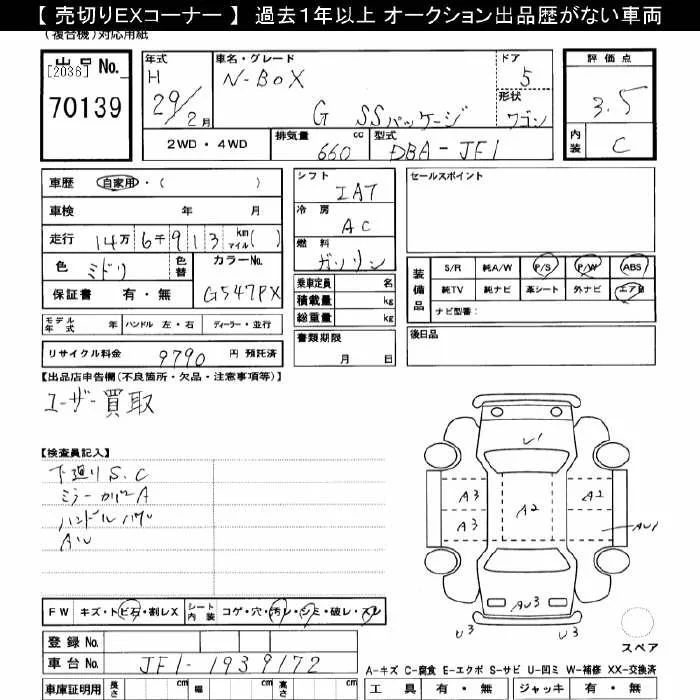 【 売切りEXコーナー 】 過去1年以上 オークション出品歴がない車両
(複合機)対応用紙
出品No.
[2036]
70139
年式
H
29/2月
車名・グレード
N-BOX
G SSパッケージ
ドア
5
形状
ワゴン
評価点
3.5
内装
C
2WD・4WD
排気量
660
cc
型式
DBA-JF1
車歴 自家用・( )
車検 年 月
走行 14万6千913 km マイル( )
色 ミドリ
色替
カラーNo.
G547PX
保証書 有・無
シフト
IAT
冷房
AC
燃料
ガソリン
乗車定員 名
積載量 kg
総重量 kg
セールスポイント
装備品
S/R 純A/W P/S P/W ABS
純TV 純ナビ 革シート 外ナビ エアB
ナビ型番:
モデル年式 年 ハンドル 左・右 ディーラー・並行
リサイクル料金 9790 円 預託済
書類期限
月 日
後日品
【出品店申告欄(不良箇所・欠品・注意事項等)】
ユーザー買取
【検査員記入】
下廻りS.C
ミラーカバーA
ハンドル
AW
U1
A3
A3
A2
A2
AU1
AU3
U3
U3
スペア
FW キズ・トビ石・割レX
シート内装 コゲ・穴・汚レ・シミ・破レ・スレ
登録No.
車台No. JF1-1939172
A-キズ C-腐食 E-エクボ S-サビ U-凹ミ W-補修 XX-交換済
車庫証明用 長さ cm 幅 cm 高さ cm
工具 有・無 ジャッキ 有・無